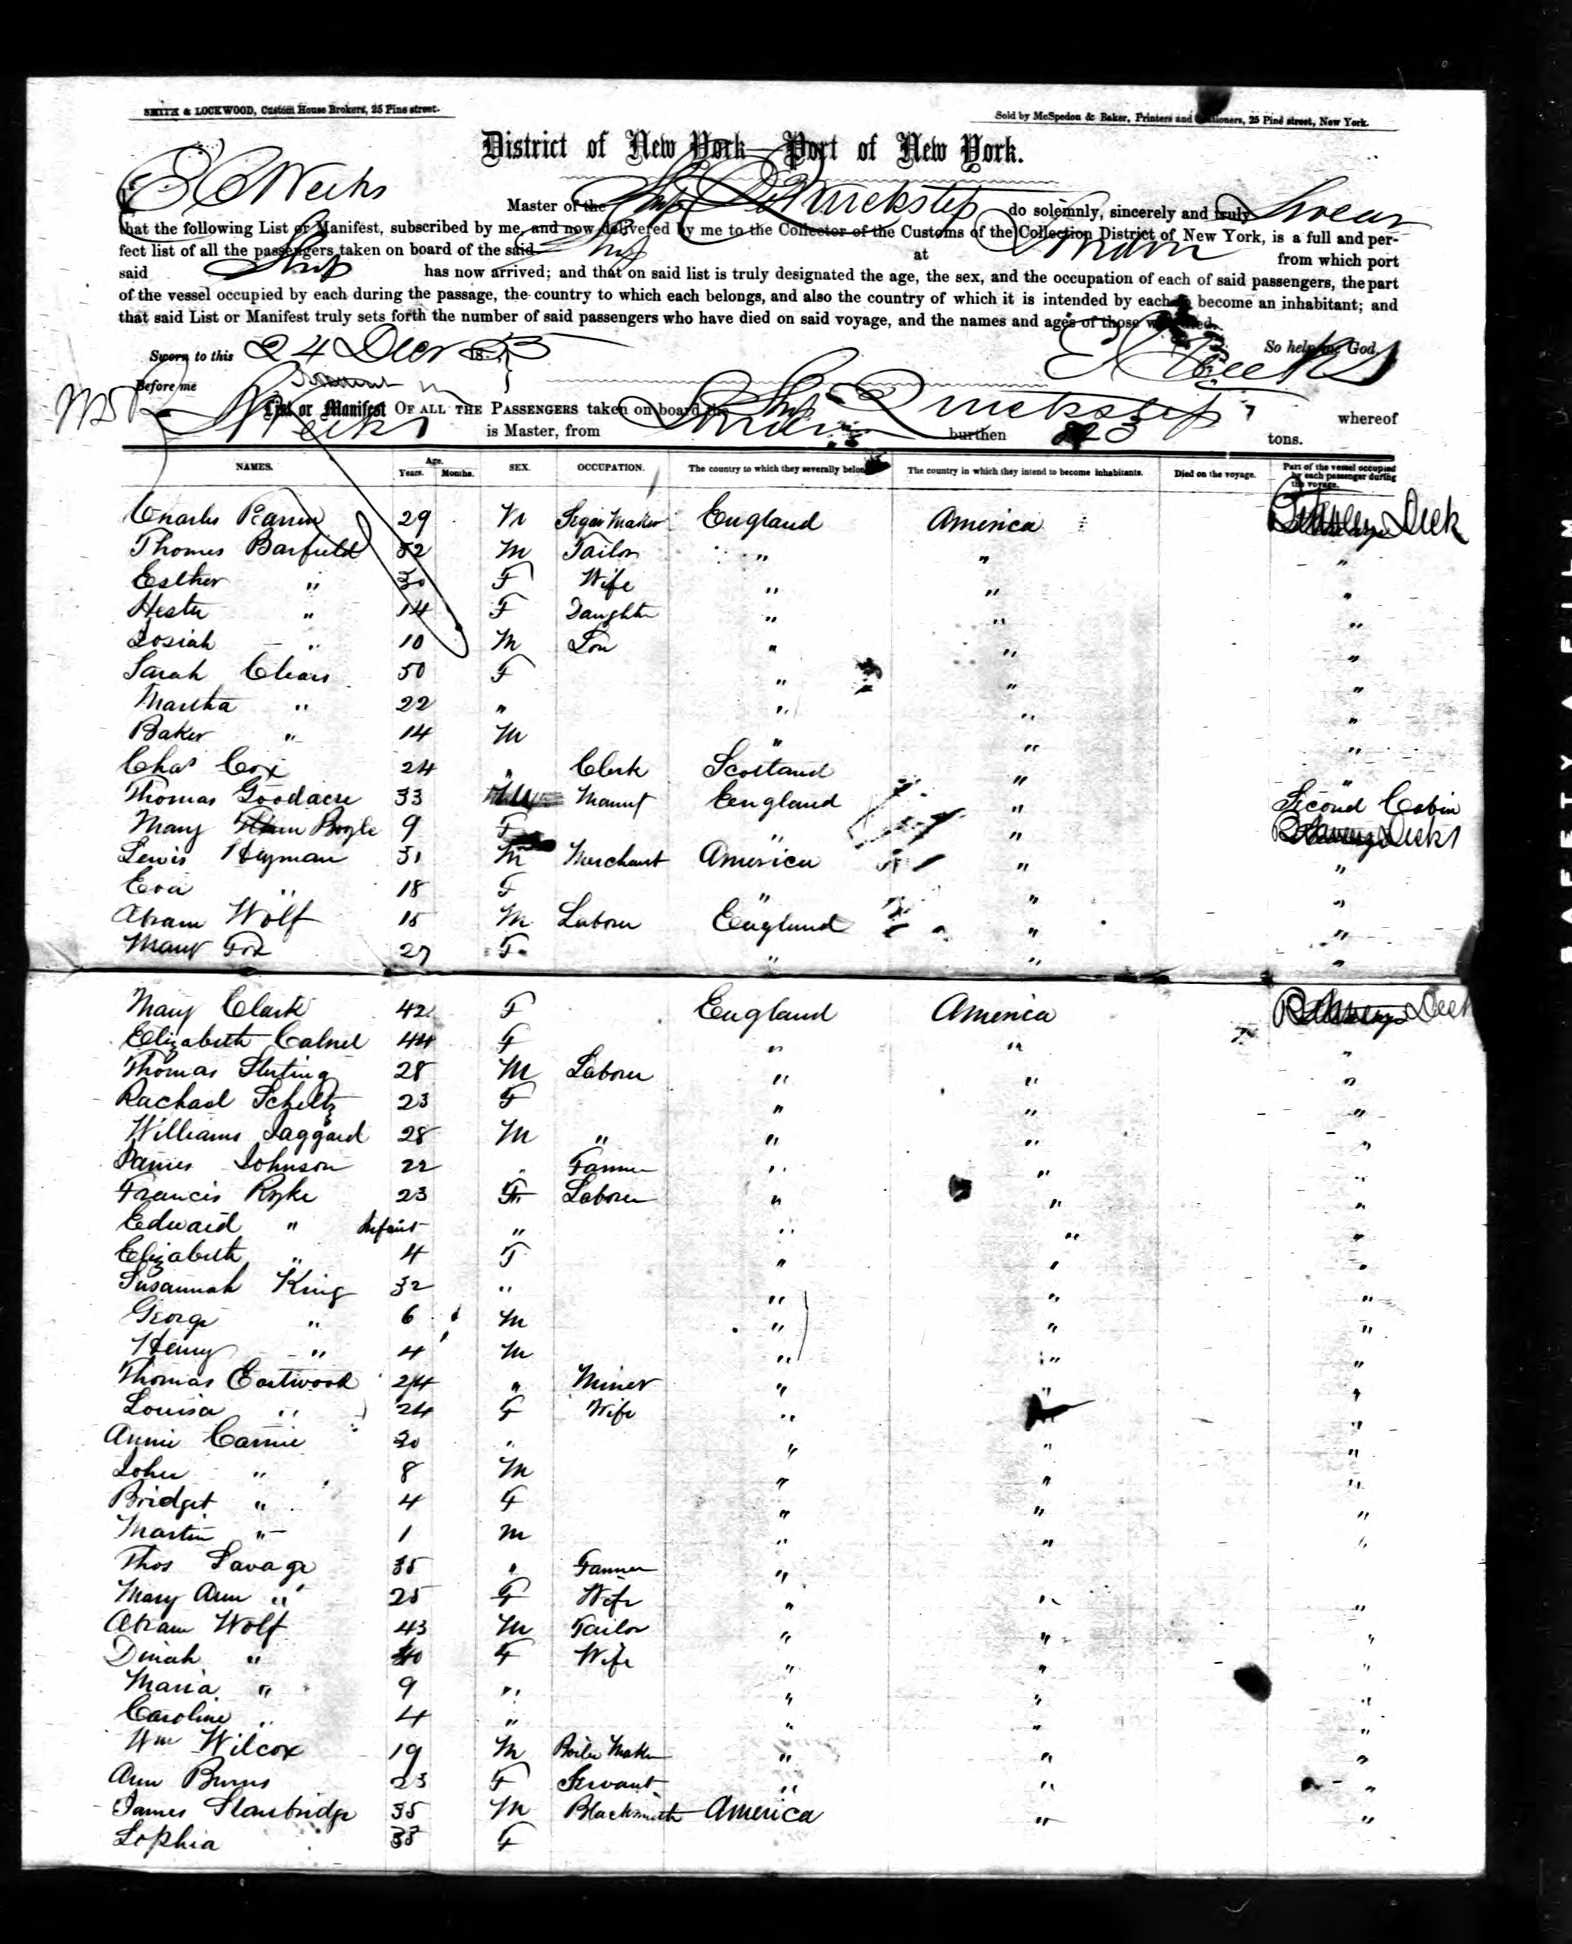 SMITH & LOCKWOOD, Custom House Brokers, 25 Pine street.
Sold by McSpedon & Baker, Printers and Stationers, 25 Pine street, New York.
District of New York—Port of New York.
E C Weeks Master of the Ship Quickstep do solemnly, sincerely and truly Swear
that the following List or Manifest, subscribed by me, and now delivered by me to the Collector of the Customs of the Collection District of New York, is a full and per-
fect list of all the passengers taken on board of the said Ship at London from which port
said Ship has now arrived; and that on said list is truly designated the age, the sex, and the occupation of each of said passengers, the part
of the vessel occupied by each during the passage, the country to which each belongs, and also the country of which it is intended by each to become an inhabitant; and
that said List or Manifest truly sets forth the number of said passengers who have died on said voyage, and the names and ages of those who died.
Sworn to this 24 Decr 1853 So help me God.
E C Weeks
Before me
List or Manifest OF ALL THE PASSENGERS taken on board the Ship Quickstep whereof
Weeks is Master, from London burthen 823 tons.
NAMES. Age. Years. Months. SEX. OCCUPATION. The country to which they severally belong. The country in which they intend to become inhabitants. Died on the voyage. Part of the vessel occupied by each passenger during the voyage.
Charles 29 M Segar Maker England America Deck
Thomas Barfield 32 M Tailor " " "
Esther " 30 F Wife " " "
Hester " 14 F Daughter " " "
Josiah " 10 M Son " " "
Sarah 50 F " " "
Martha " 22 " " " "
Baker " 14 M " " "
Chas Cox 24 " Clerk Scotland " "
Thomas Goodacre 33 Manuf England " Second Cabin
Mary Boyle 9 F " " Deck
Lewis Hyman 31 M Merchant America " "
Eva " 18 F " " "
Abram Wolf 15 M Laborer England " "
Mary Fox 27 F " " "
Mary Clark 42 F England America Deck
Elizabeth 44 F " " "
Thomas 28 M Laborer " " "
Rachael Scheltz 23 F " " "
Williams Jaggard 28 M " " " "
James Johnson 22 " Farmer " " "
Francis Ryke 23 F Laborer " " "
Edward " Infant " " " "
Elizabeth " 4 F " " "
Susannah King 32 " " " "
George " 6 M " " "
Henry " 4 M " " "
Thomas Eastwood 24 " Miner " " "
Louisa " 24 F Wife " " "
Annie Carnie 30 " " " "
John " 8 M " " "
Bridget " 4 F " " "
Martin " 1 M " " "
Thos Savage 35 " Farmer "
Mary Ann " 25 F Wife " " "
Abram Wolf 43 M Tailor " " "
Dinah " 40 F Wife " " "
Maria " 9 " " " "
Caroline " 4 " " " "
Wm Wilcox 19 M Boiler Maker " " "
Ann Burns 23 F Servant " " "
James Stanbridge 35 M Blacksmith America " "
Sophia 35 F